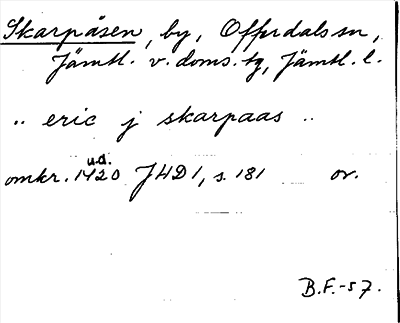 Skarpåsen, by, Offerdals sn,
Jämtl. v. doms. tg, Jämtl. l.
.. eric j skarpaas ..
u.d.
omkr. 1420 JHD 1, s. 181 or.
B.F.-57.